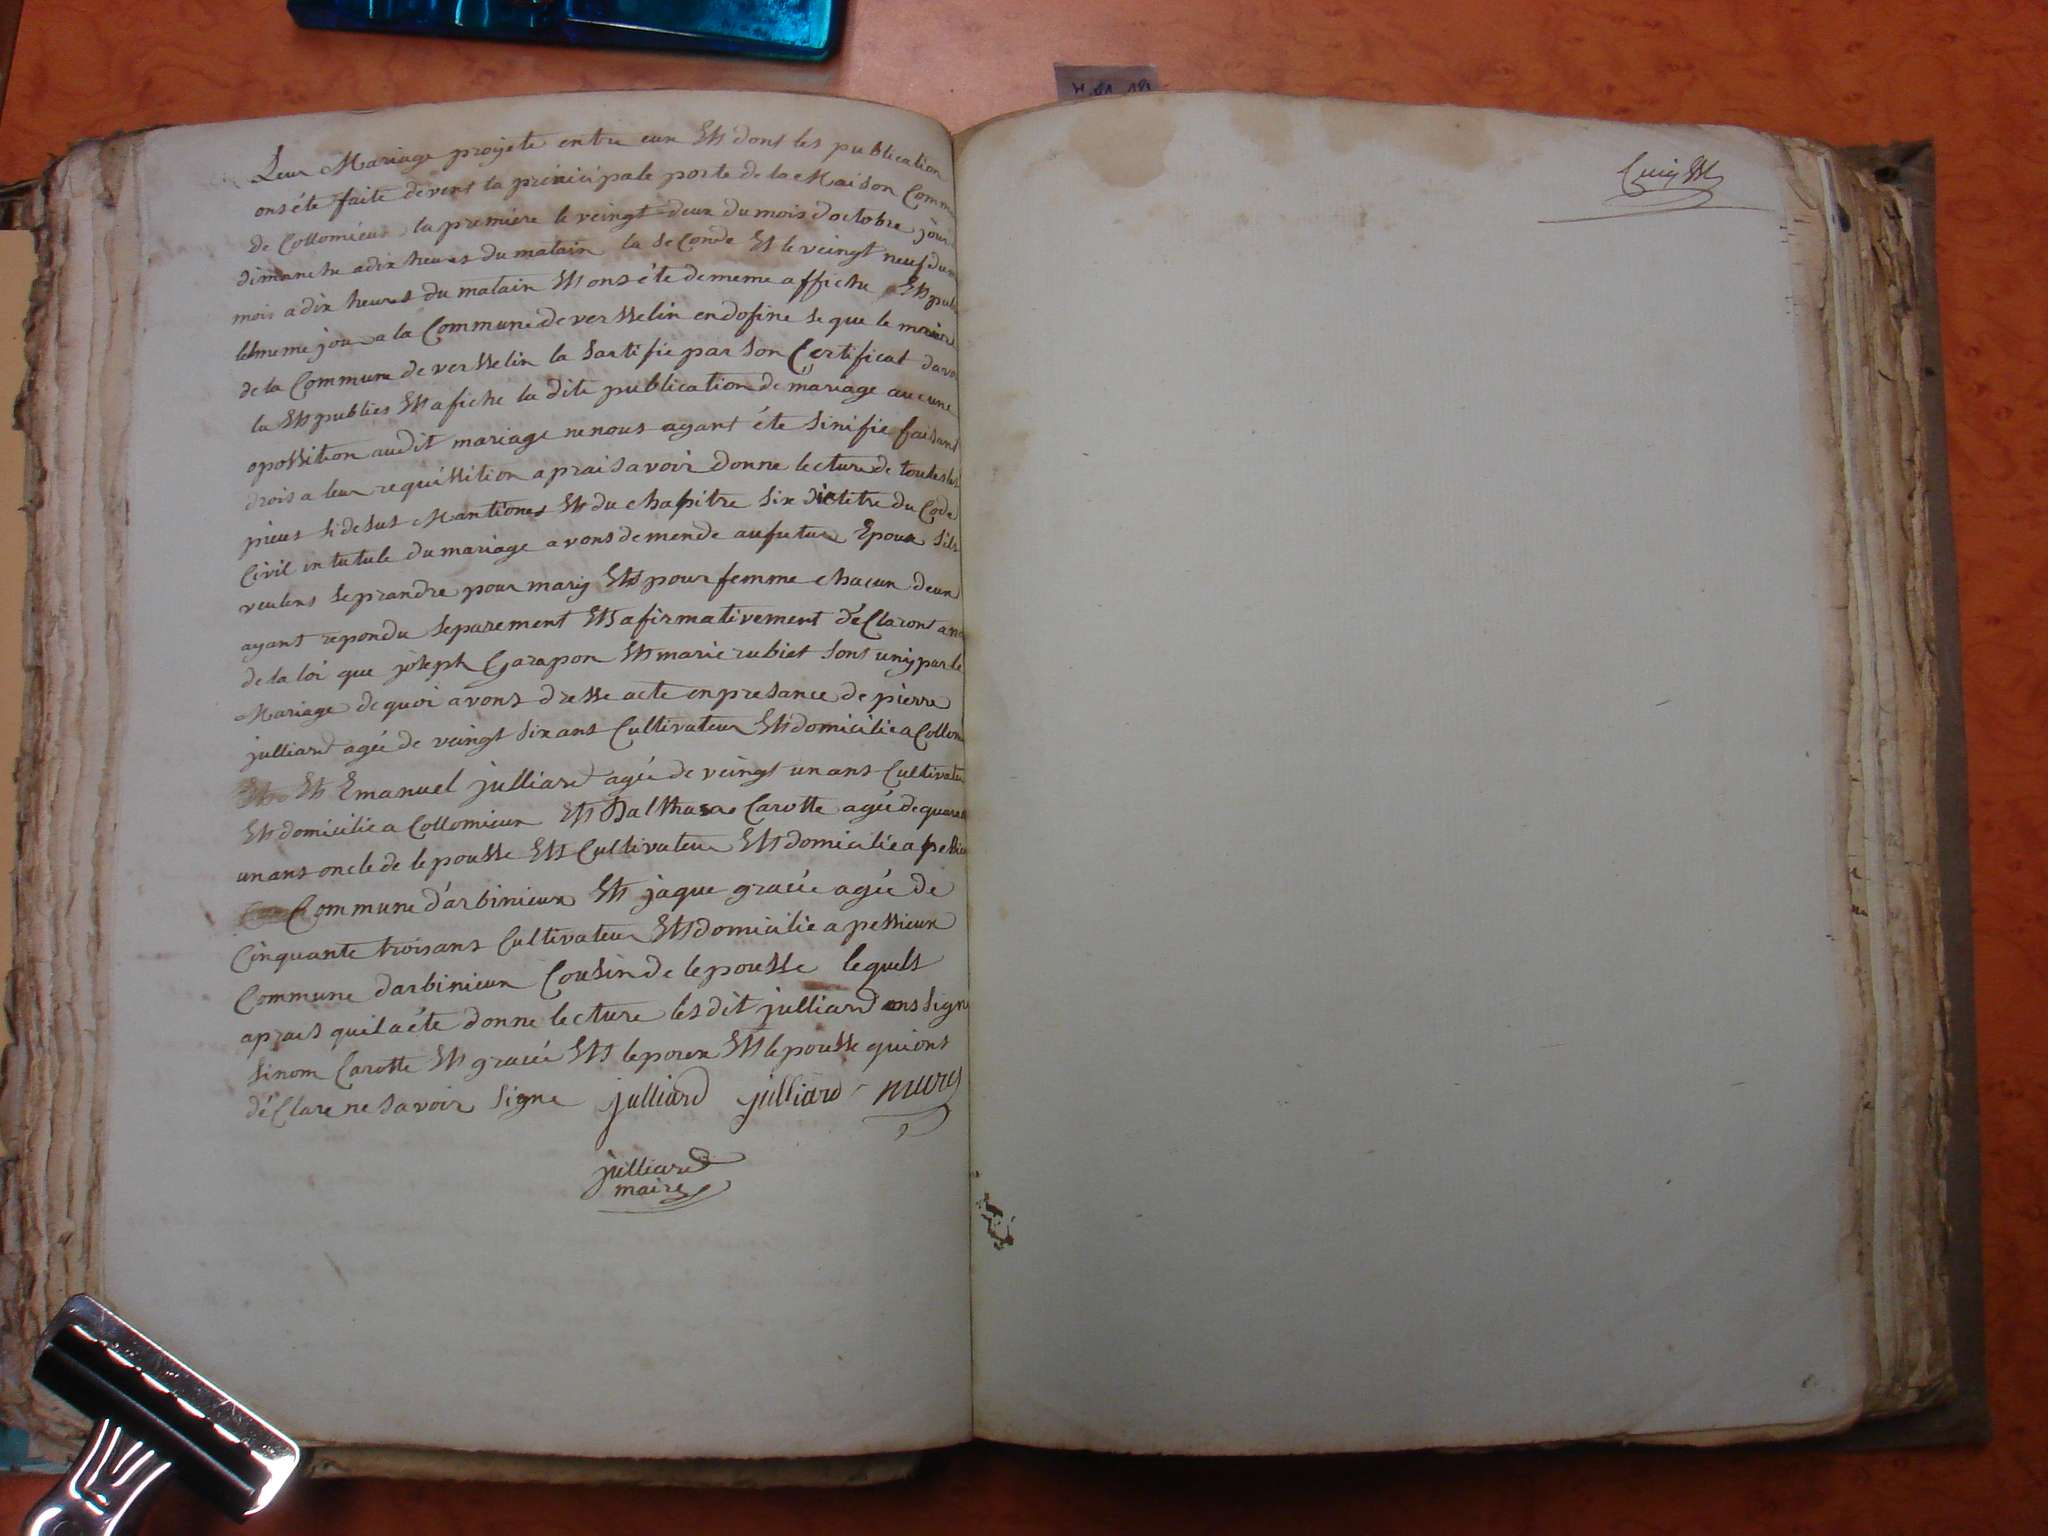 Leur Mariage projete entre eux Et dont les publication
ons éte faite devent la prinicipale porte de la Maison Comm
de Collomieux la premiere le veingt deux du mois doctobre jour
dimanche a dix heures du matain la seConde Et le veingt neuf dum
mois a dix heures du matain Et ons éte de meme affiche Et publ
lesmeme jour a la Commune de versselin endofine se que le maire
de la Commune de versselin la sartifie par son Certificat davo
la Et publies Et afiche la dite publication de mariage aucune
opossition audit mariage ne nous ayant éte sinifie faisant
drois a leur requissition aprais avoir donne lecture de toutes les
pieces si desus Mantiones Et du chapitre six du titre du Code
Civil intutule du mariage avons demende au futur Epoux sils
veulens se prandre pour mariy Et pour femme chacun deux
ayant repondu separement Et afirmativement déClaront a no
de la loi que joseph Garapon Et marie rubiet sont uniy par le
Mariage de quoi avons dresse acte en presance de pierre
julliard agée de veingt six ans Cultivateur Et domicilie a Collom
Et Emanuel julliard agée de veingt un ans Cultivateu
Et domicilie a Collomieux Et Balthasar Carotte agée de quaran
un ans oncle de lepousse Et Cultivateur Et domicilie a pessieu
Commune d'arbinieux Et jaque gracée agée de
Cinquante trois ans Cultivateur Et domicilie a pessieux
Commune darbinieux Cousin de lepousse lequels
aprais quil a éte donne lecture les dit julliard ons signe
sinom Carotte Et gracée Et lepoux Et lepousse qui ons
déClare ne savoir signe julliard julliard mury
julliard
maire